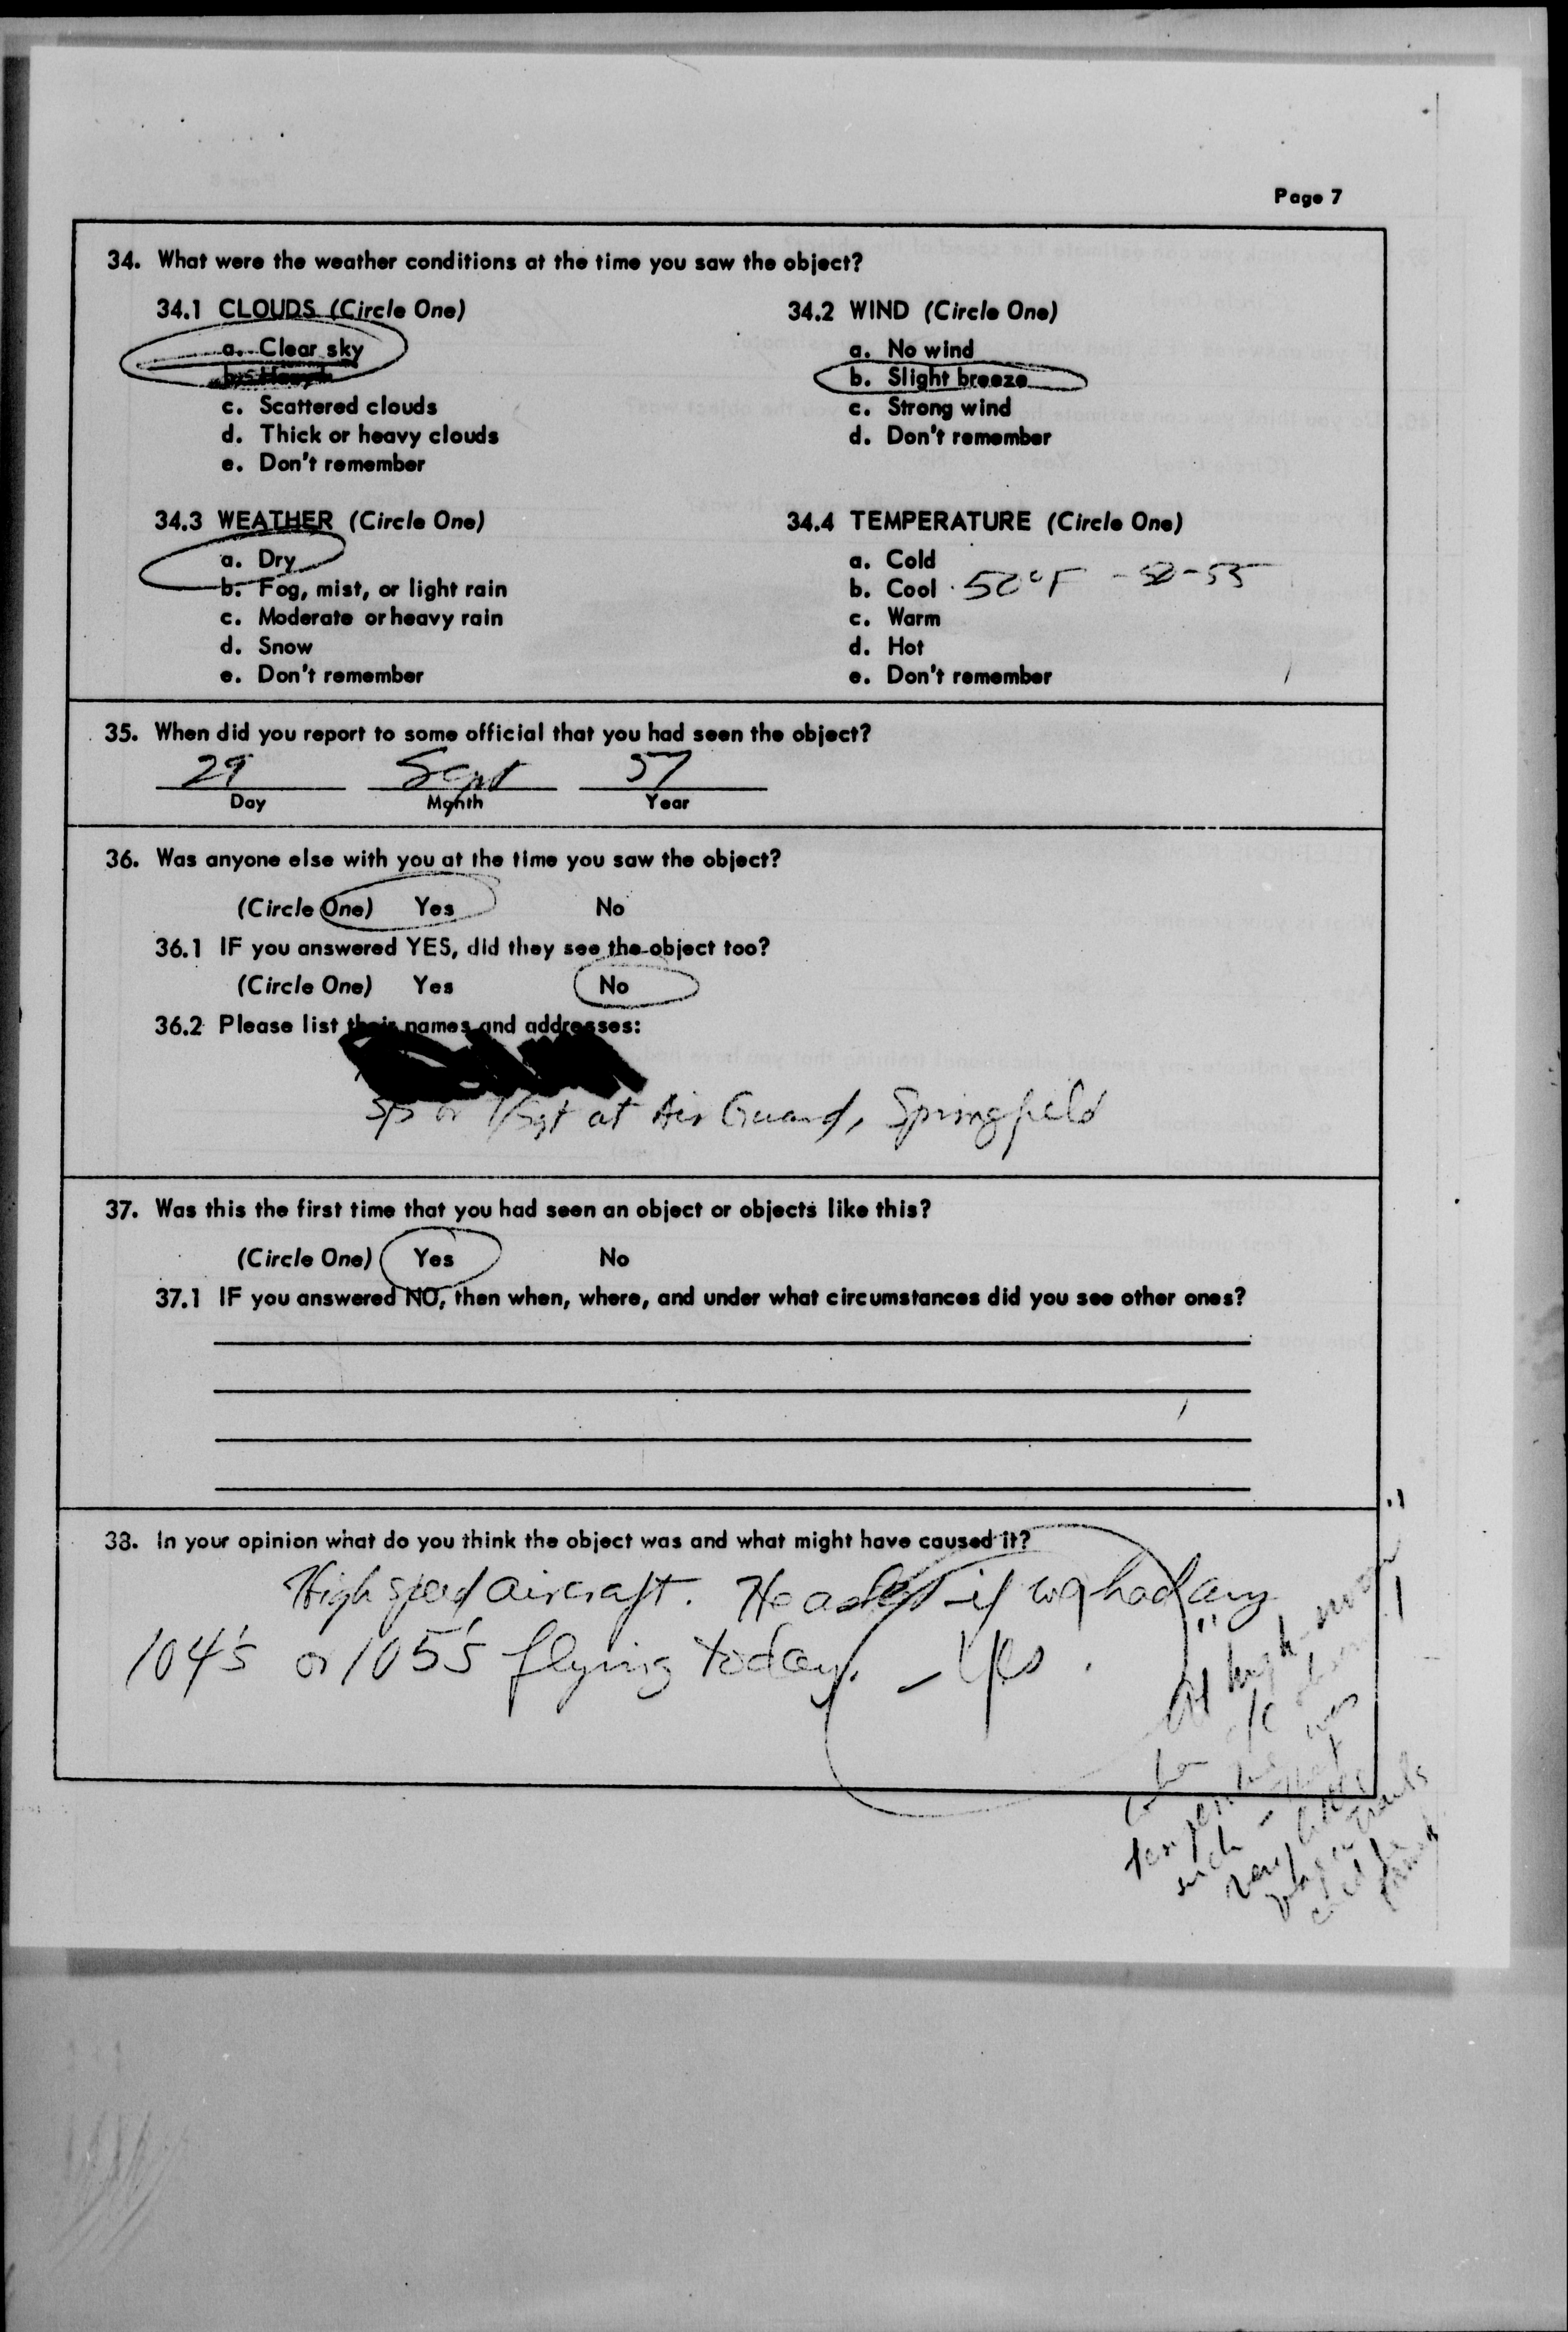 Page 7
34. What were the weather conditions at the time you saw the object?
34.1 CLOUDS (Circle One)
a. Clear sky
c. Scattered clouds
d. Thick or heavy clouds
e. Don't remember
34.2 WIND (Circle One)
a. No wind
b. Slight breeze
c. Strong wind
d. Don't remember
34.3 WEATHER (Circle One)
a. Dry
b. Fog, mist, or light rain
c. Moderate or heavy rain
d. Snow
e. Don't remember
34.4 TEMPERATURE (Circle One)
a. Cold
b. Cool 50°F - 50-55
c. Warm
d. Hot
e. Don't remember
35. When did you report to some official that you had seen the object?
29 Sept 57
Day Month Year
36. Was anyone else with you at the time you saw the object?
(Circle One) Yes No
36.1 IF you answered YES, did they see the object too?
(Circle One) Yes No
36.2 Please list their names and addresses:
or T/Sgt at Air Guard, Springfield
37. Was this the first time that you had seen an object or objects like this?
(Circle One) Yes No
37.1 IF you answered NO, then when, where, and under what circumstances did you see other ones?
38. In your opinion what do you think the object was and what might have caused it?
High speed aircraft. He asked if we had any
104's or 105's flying today. - Yes.
At high noon
was
such - that
very little
trails